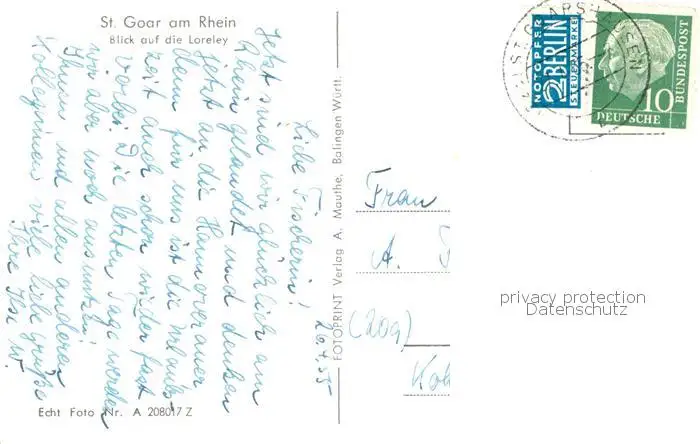 St. Goar am Rhein
Blick auf die Loreley
20.4.55
Liebe Fischerin!
Jetzt sind wir glücklich am
Rhein gelandet und denken
jetzt an die Hannoveraner
denn für uns ist die Urlaubs-
zeit auch schon wieder fast
vorbei. Die letzten Tage werden
wir aber noch ausnutzen!
Ihnen und allen anderen
Kolleginnen viele liebe Grüße
Ihre Ilse W.
Echt Foto Nr. A 208017 Z
FOTOPRINT Verlag A. Mauthe, Balingen Württ.
NOTOPFER
2 BERLIN
STEUERMARKE
10
DEUTSCHE
BUNDESPOST
Frau
A.
(20a)
privacy protection
Datenschutz